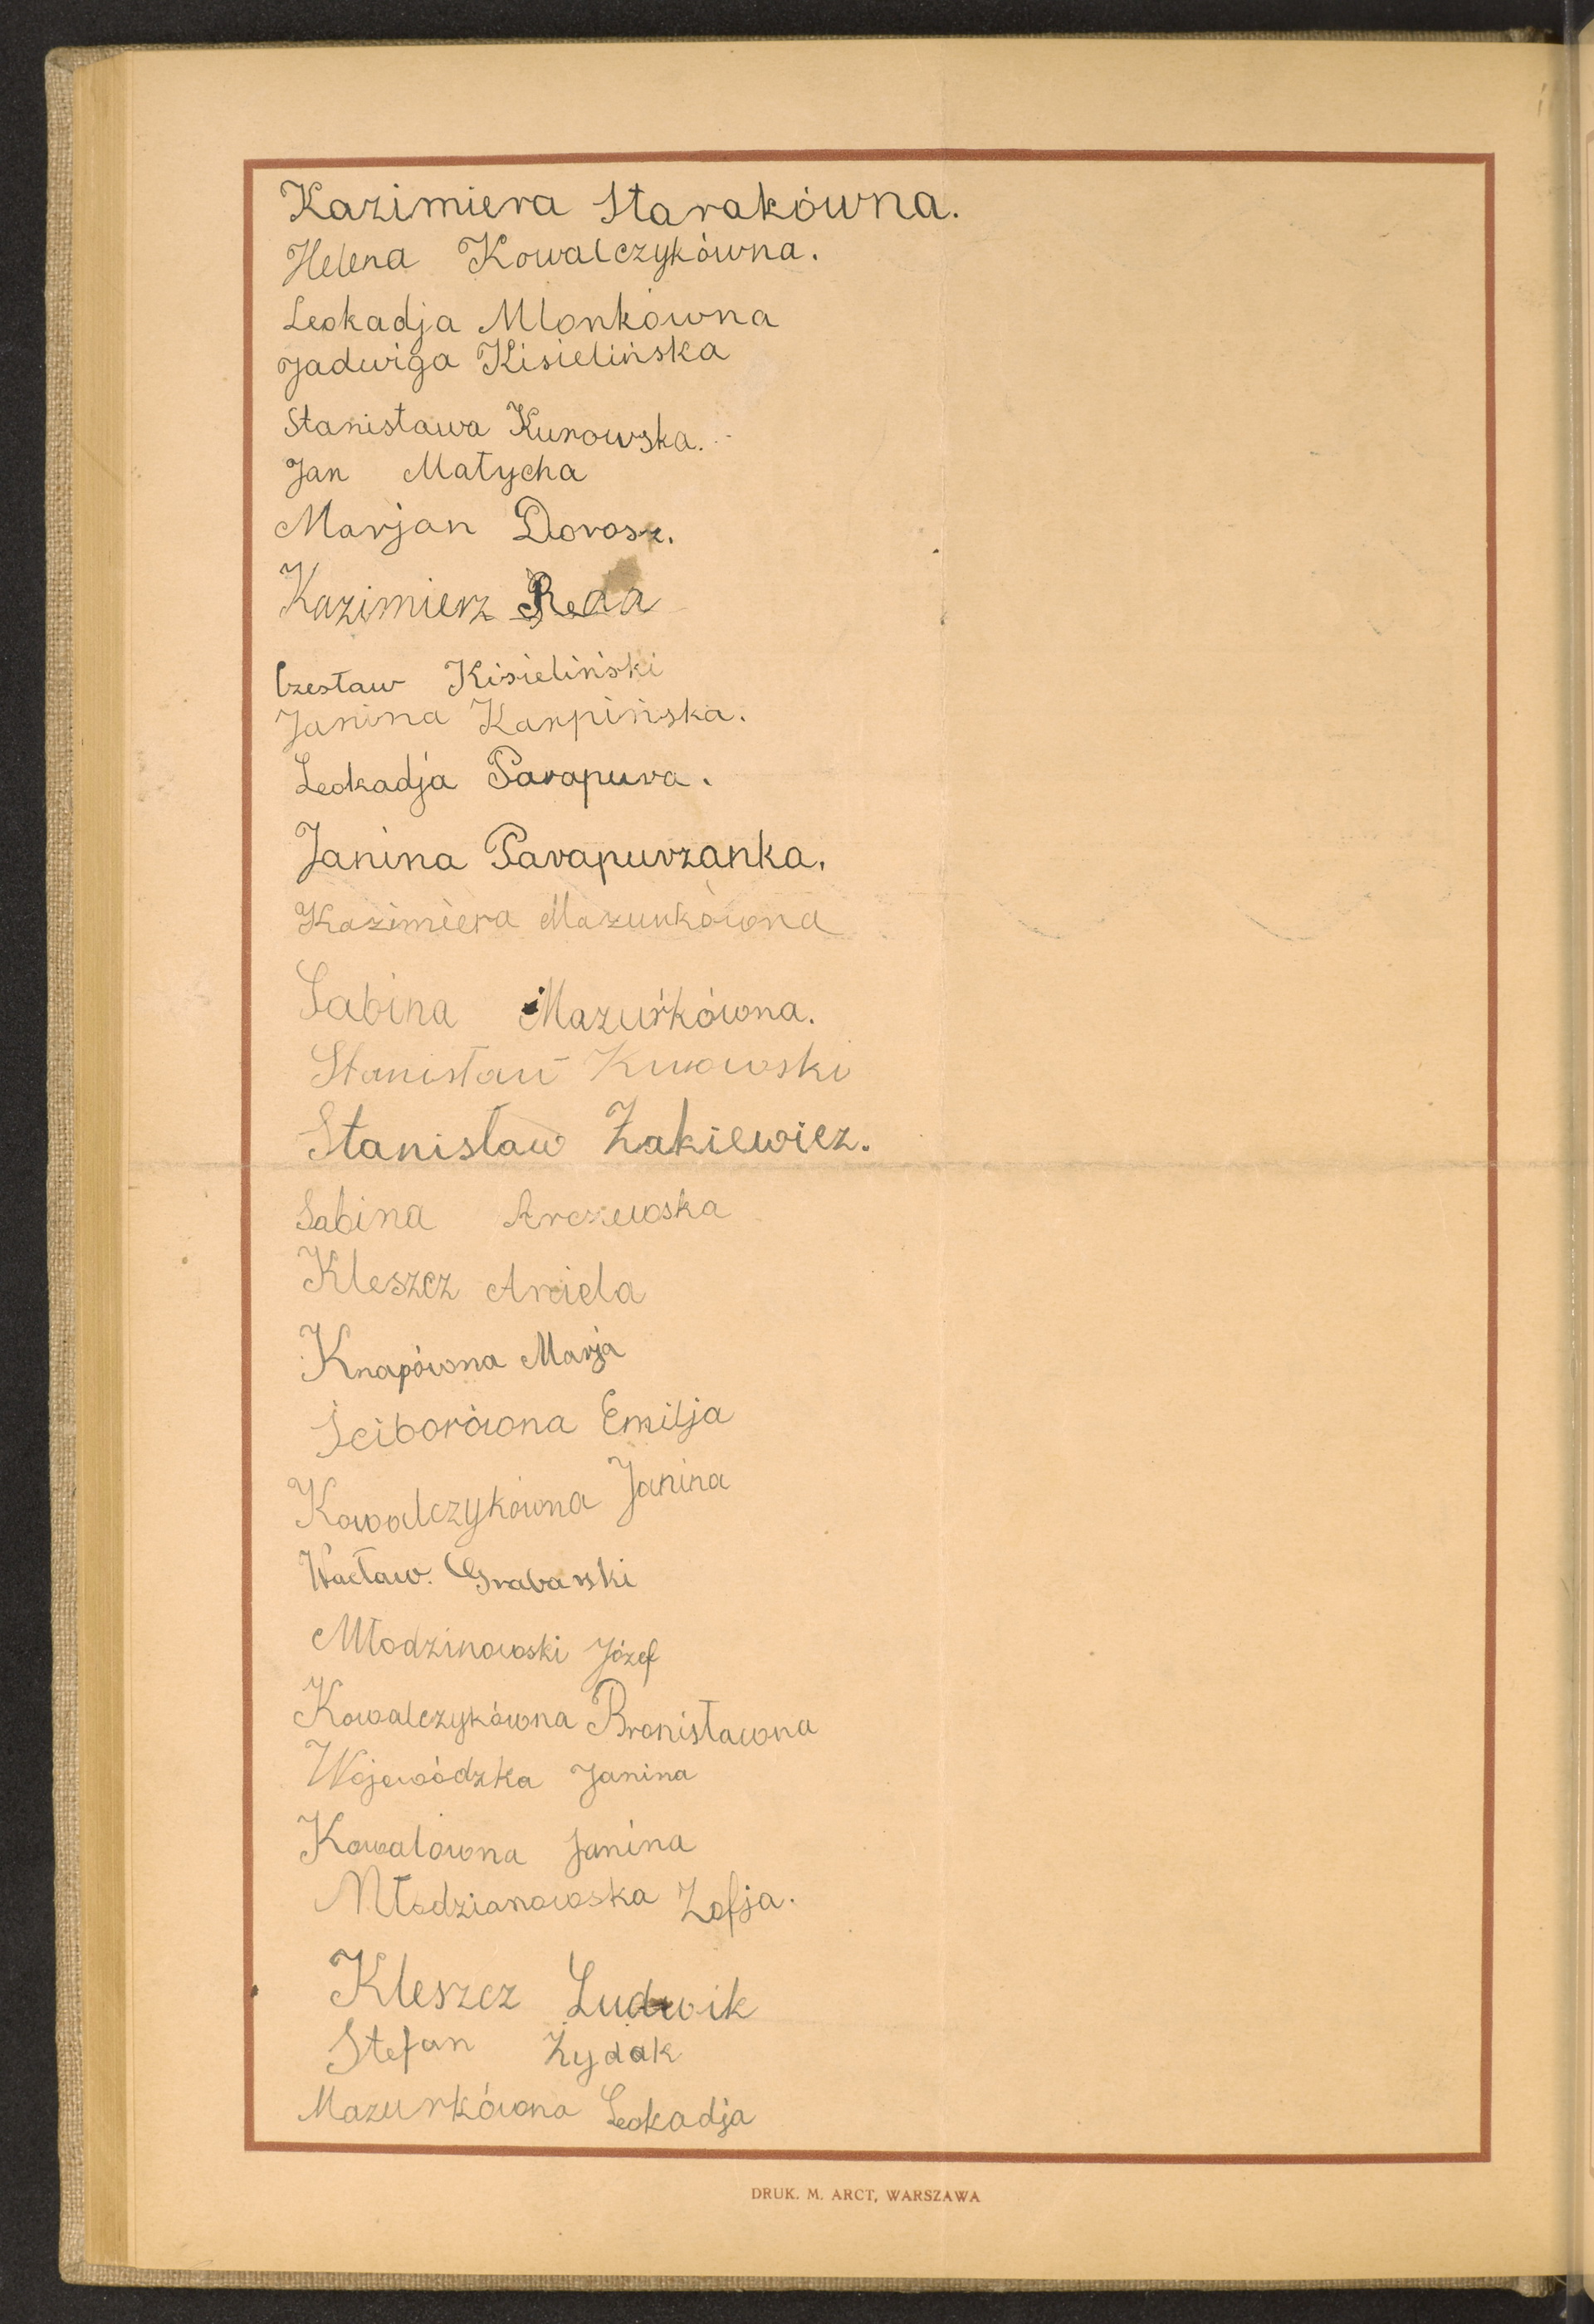 Kazimiera Starakówna.
Helena Kowalczykówna.
Leokadja Mlonkówna
Jadwiga Kisielińska
Stanisława Kurowska.
Jan Małycha
Marjan Dorosz.
Kazimierz Reda
Czesław Kisieliński
Janina Karpińska.
Leokadja Parapura.
Janina Parapurzanka.
Kazimiera Mazurkówna
Sabina Mazurkówna.
Stanisław Kurowski
Stanisław Żakiewicz.
Sabina Arczewska
Kleszcz Aniela
Knapówna Marja
Ściborówna Emilja
Kowalczykówna Janina
Wacław. Grabarski
Młodzinowski Józef
Kowalczykówna Bronisławna
Wojewódzka Janina
Kowalówna Janina
Młodzianowska Zofja.
Kleszcz Ludwik
Stefan Żydak
Mazurkówna Leokadja
DRUK. M. ARCT, WARSZAWA